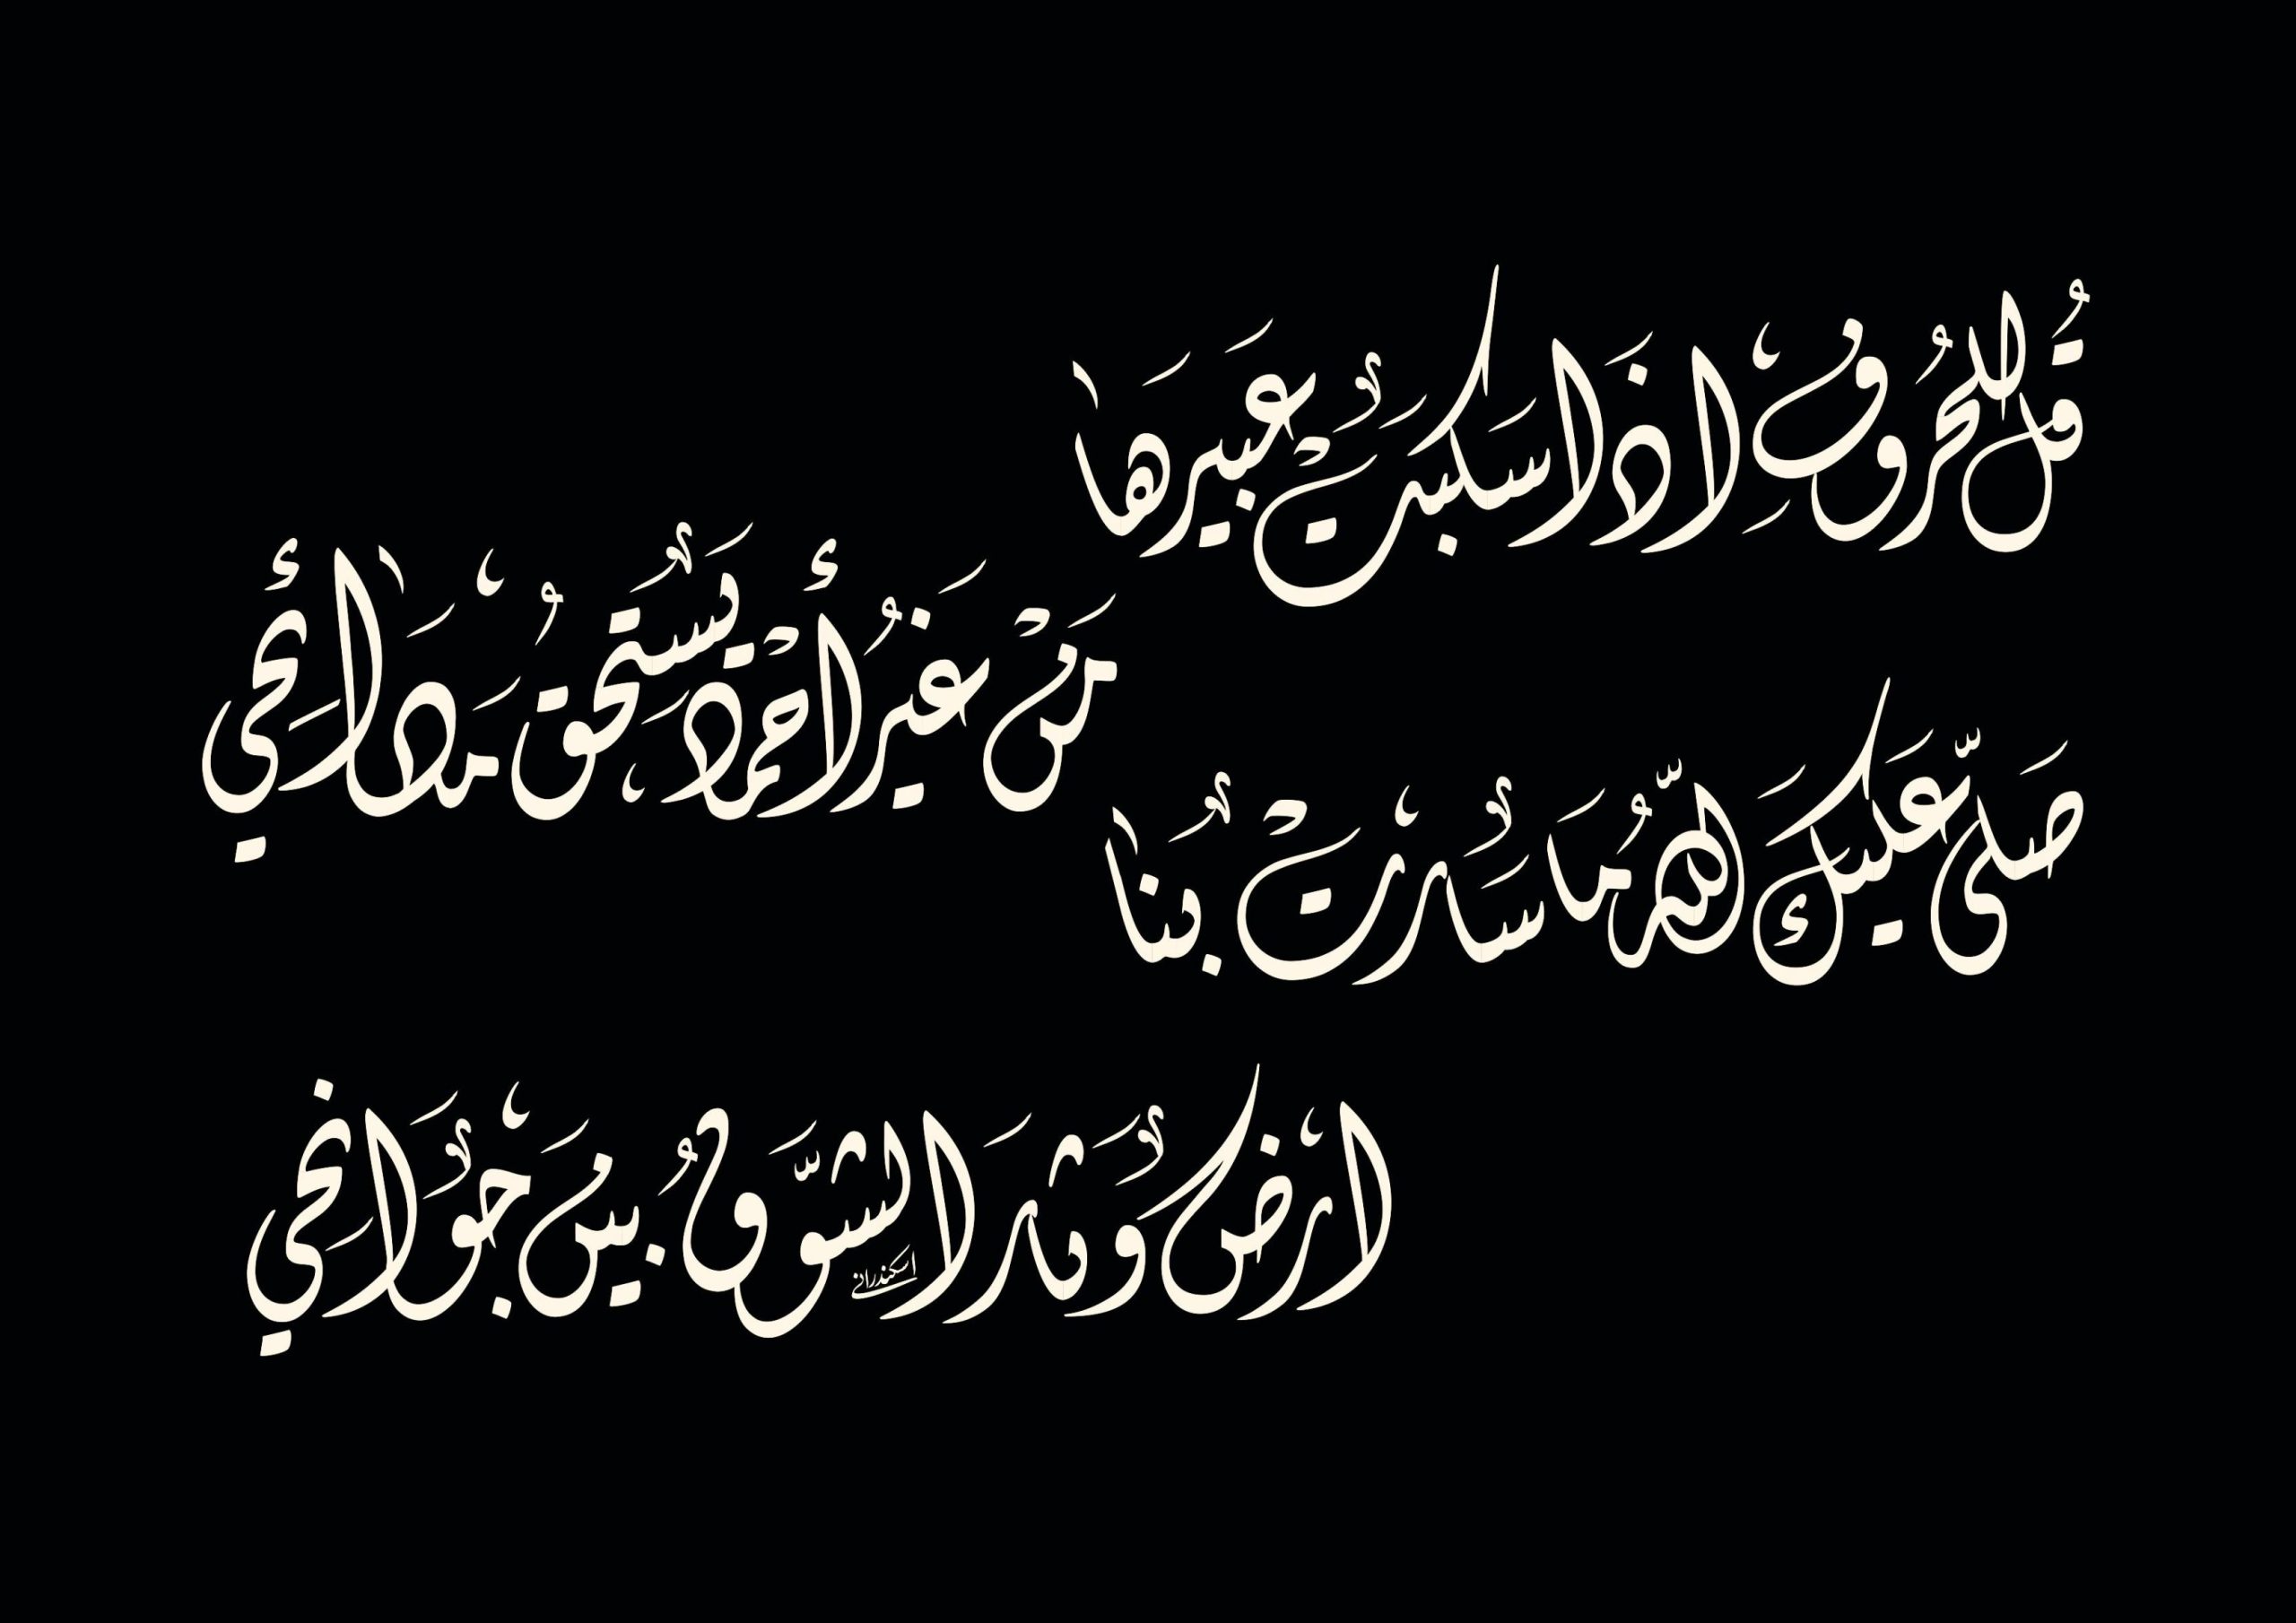 قُل للحُروفِ اذَا سَكَبتْ عَبيرَها
مَنْ غَيرُ أحْمدَ يَستَحقُ مَدَائِحي
صَلّى عَليكَ اللهُ مَا سَارتْ بنا
ارضٌ وَثَار الشَّوقُ بينَ جَوَانِحي
اسكندراني